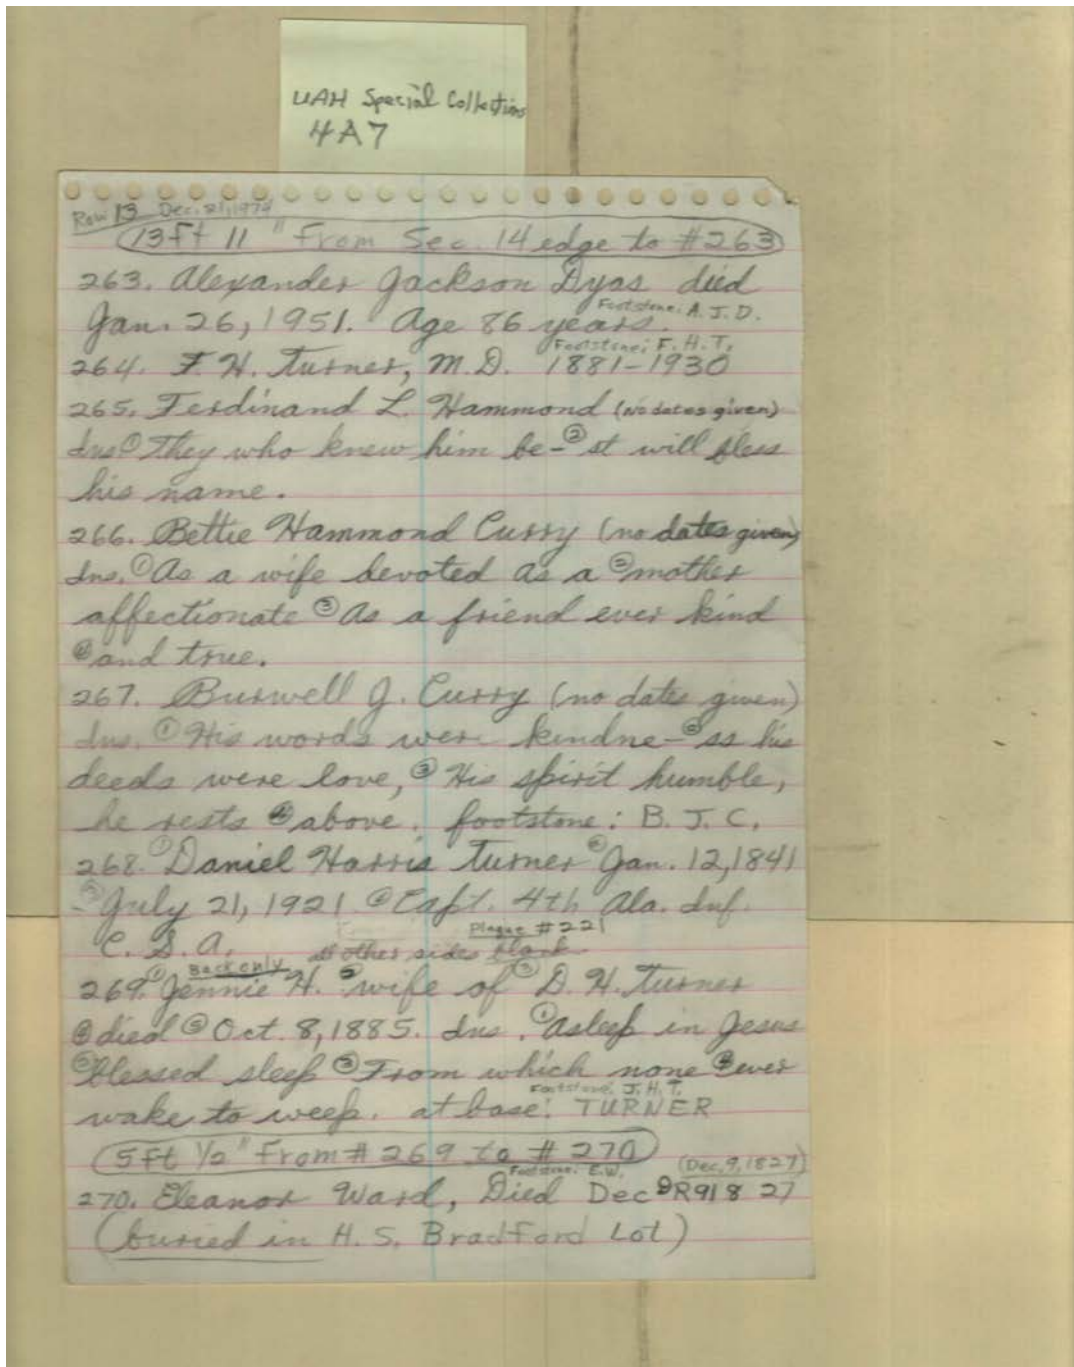 UAH Special Collections
4A7
Row 13 Dec. 21, 1974
13ft 11" From Sec. 14 edge to #263
263. Alexander Jackson Dyas died
Footstone: A. J. D.
Jan. 26, 1951. Age 86 years.
Footstone: F. H. T.
264. F. H. Turner, M.D. 1881-1930
265. Ferdinand L. Hammond (No dates given)
Ins. ① They who knew him be- ② st will bless
his name.
266. Bettie Hammond Curry (no dates given)
Ins. ① As a wife devoted as a ② mother
affectionate ③ As a friend ever kind
④ and true.
267. Burwell J. Curry (no dates given)
Ins. ① His words were kindne- ② ss his
deeds were love, ③ His spirit humble,
he rests ④ above. footstone: B. J. C.
268. ① Daniel Harris Turner ② Jan. 12, 1841
③ - July 21, 1921 ④ Capt. 4th Ala. Inf.
Plaque #221
C. S. A. other sides blank
Back only
269. ① Jennie H. ② wife of ③ D. H. Turner
④ died ⑤ Oct. 8, 1885. Ins. ① Asleep in Jesus
② blessed sleep ③ From which none ④ ever
Footstone: J. H. T.
wake to weep. at base: TURNER
5ft ½" From # 269 to # 270
Footstone: E.W. (Dec. 9, 1827)
270. Eleanor Ward, Died Dec ② R918 27
(buried in H. S. Bradford Lot)